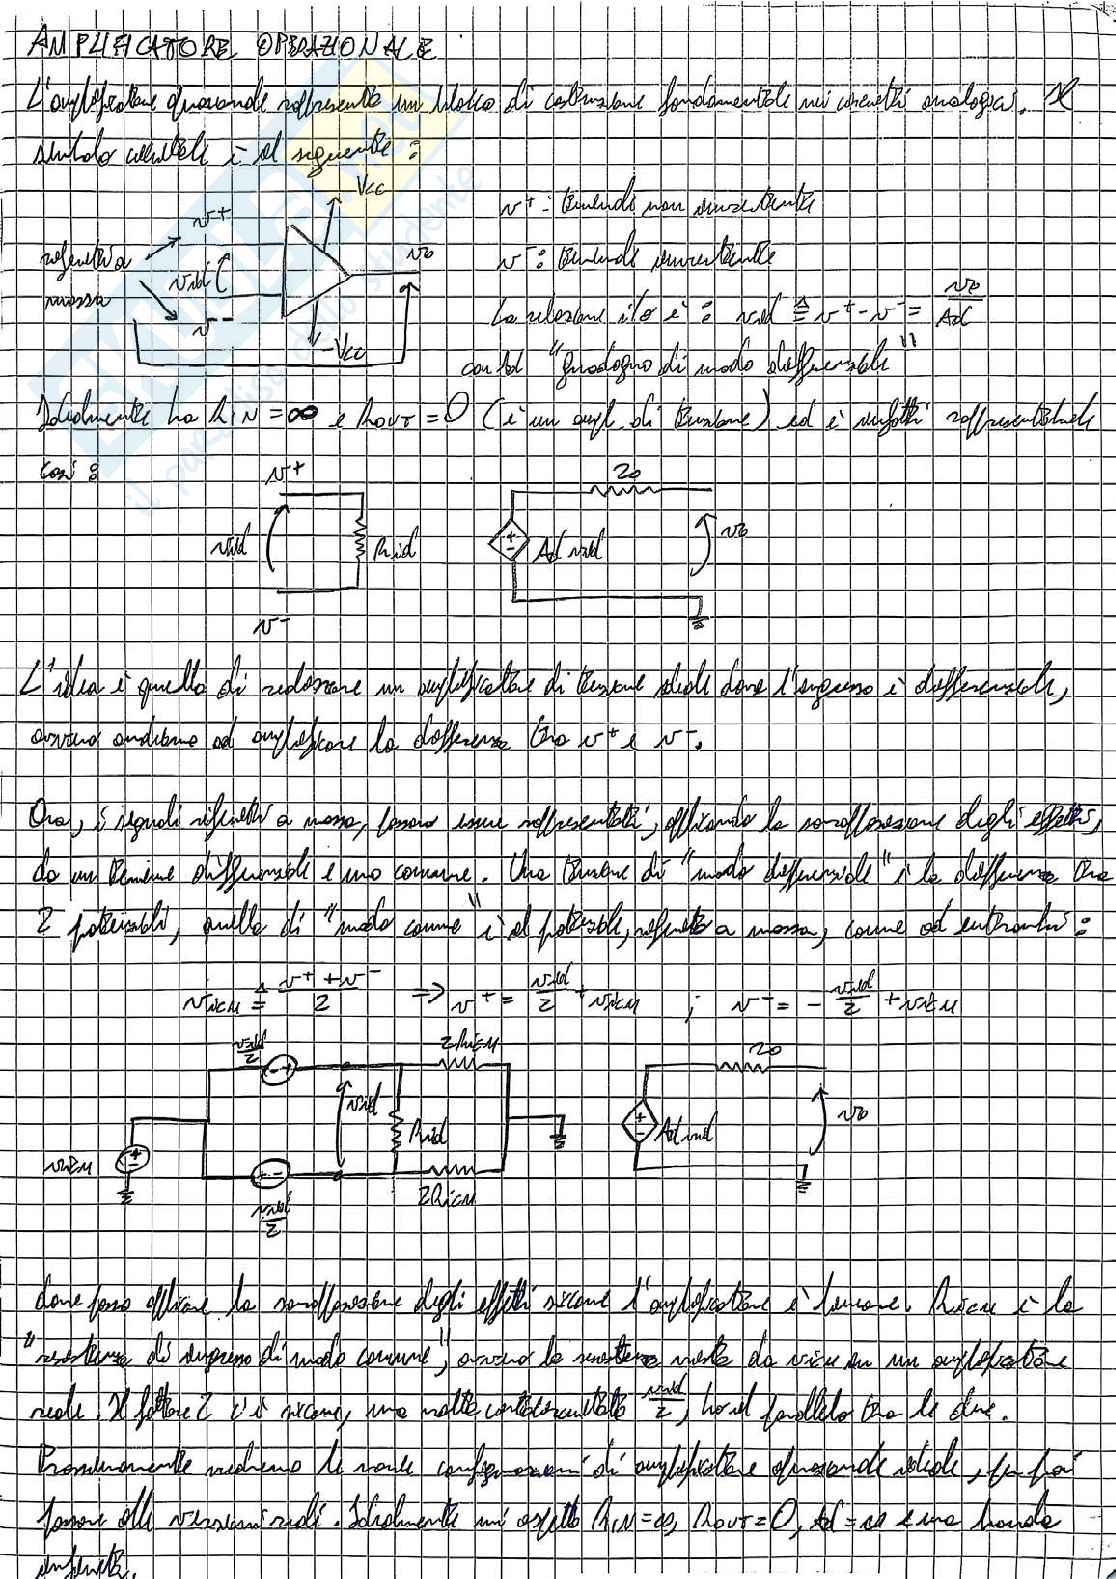 AMPLIFICATORE OPERAZIONALE
L'amplificatore operazionale rappresenta un blocco di costruzione fondamentale nei circuiti analogici. Il
simbolo circuitale è il seguente:
Vcc
v+
v+: terminale non invertente
riferiti a
massa
vid
vo
v-: terminale invertente
v-
-Vcc
La relazione i/o è: vid ≜ v+ - v- = vo/Ad
con Ad "guadagno di modo differenziale"
Idealmente ha RIN = ∞ e ROUT = 0 (è un ampl. di tensione) ed è infatti rappresentabile
così:
v+
zo
vid
Rid
Ad vid
vo
v-
L'idea è quella di realizzare un amplificatore di tensione ideale dove l'ingresso è differenziale,
ovvero andiamo ad amplificare la differenza tra v+ e v-.
Ora, i segnali riferiti a massa, possono essere rappresentati, applicando la sovrapposizione degli effetti,
da un termine differenziale e uno comune. Una tensione di "modo differenziale" è la differenza tra
2 potenziali, quella di "modo comune" è il potenziale, riferito a massa, comune ad entrambi:
vICM ≜ (v+ + v-)/2 ⇒ v+ = vid/2 + vICM ; v- = -vid/2 + vICM
vid/2
2RICM
zo
vid
Rid
Ad vid
vo
vICM
2RICM
vid/2
dove posso applicare la sovrapposizione degli effetti siccome l'amplificatore è lineare. RICM è la
"resistenza di ingresso di modo comune", ovvero la resistenza vista da vICM in un amplificatore
reale. Il fattore 2 c'è siccome, una volta cortocircuitate vid/2, ho il parallelo tra le due.
Prossimamente vedremo le varie configurazioni di amplificatore operazionale ideale, per poi
passare alle versioni reali. Idealmente mi aspetto RIN = ∞, ROUT = 0, Ad = ∞ e una banda
infinita.